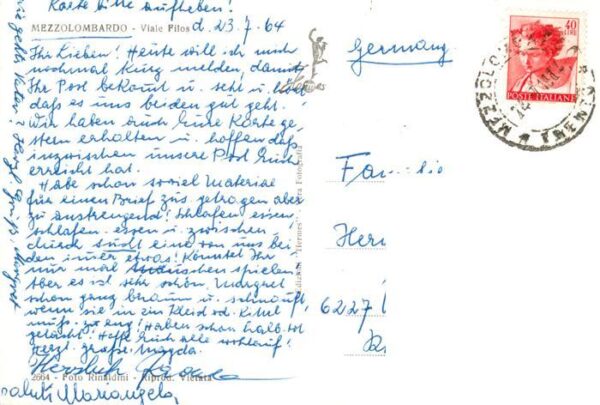 Karte bitte aufheben!
MEZZOLOMBARDO - Viale Pilos
d. 23.7.64
Ihr Lieben! Heute will ich mich
nochmal kurz melden, damit
Ihr Post bekommt u. seht u. 
daß es uns beiden gut geht.
Wir haben auch Eure Karte ge-
stern erhalten u. hoffen daß
inzwischen unsere Post Euch
erreicht hat.
Habe schon soviel Material
für einen Brief zus. getragen aber
zu anstrengend! Schlafen essen,
schlafen essen u. zwischen
durch sucht eine von uns bei-
den immer etwas! Könntet Ihr
nur mal mäuschen spielen.
Aber es ist sehr schön. Margret
schon ganz braun u. schnauft,
wenn sie in ein Kleid od. Kittel
muß. zu eng! Haben schon halb tot
gelacht! Hoffe Euch alle wohlauf!
herzl. Grüße Magda.
Herzlich
saluti Mariangela
wie geht Vater? Herzl. Grüße Margret
2664 - Foto Rinaldini - Riprod. Vietata
Edizioni "Hermes" - Vera Fotografia
Germany
Fa
Herr
6227
40
LIRE
POSTE ITALIANE
MEZZOLOMBARDO
TRENTO